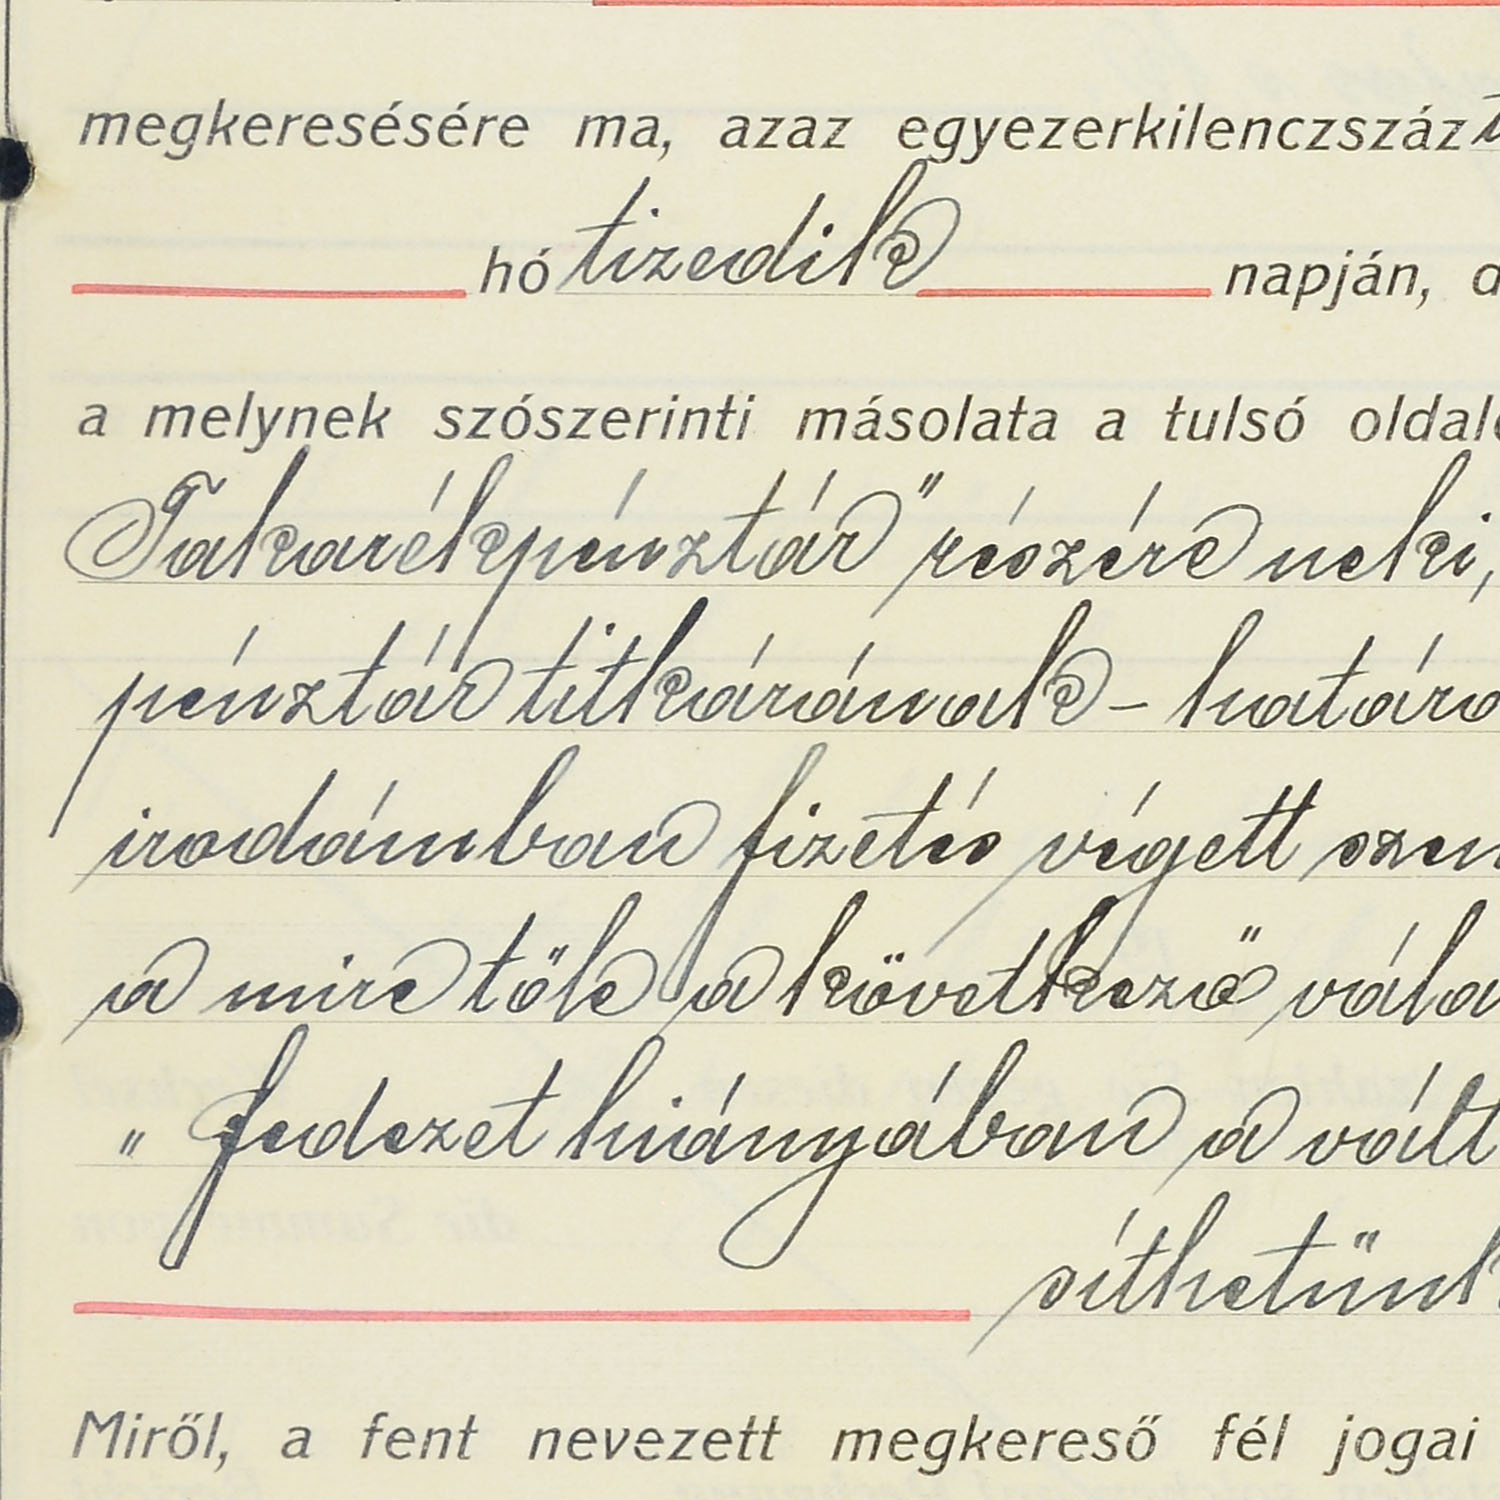 megkeresésére ma, azaz egyezerkilenczszáz
hó tizedik napján,
a melynek szószerinti másolata a tulsó oldal
Takarékpénztár" részére neki,
pénztár titkárának - határo
irodámban fizetés végett szem
a mire tőle a következő vála
„ fedezet hiányában a vált
síthetünk
Miről, a fent nevezett megkereső fél jogai